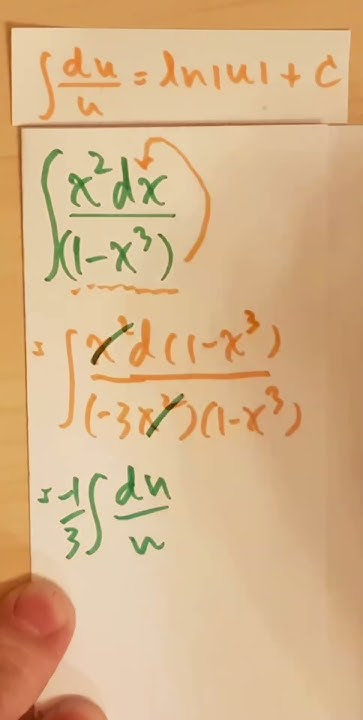 ∫ du/u = ln|u| + C
∫ x²dx/(1-x³)
= ∫ x²d(1-x³)/(-3x²)(1-x³)
= -1/3 ∫ du/u